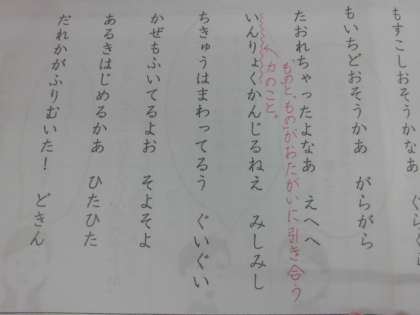 もすこしおそうかなあ　ぐらぐら
もいちどおそうかあ　がらがら
たおれちゃったよなあ　えへへ
ものと、ものがおたがいに引き合う
力のこと。
いんりょくかんじるねえ　みしみし
ちきゅうはまわってるう　ぐいぐい
かぜもふいてるよお　そよそよ
あるきはじめるかあ　ひたひた
だれかがふりむいた！　どきん